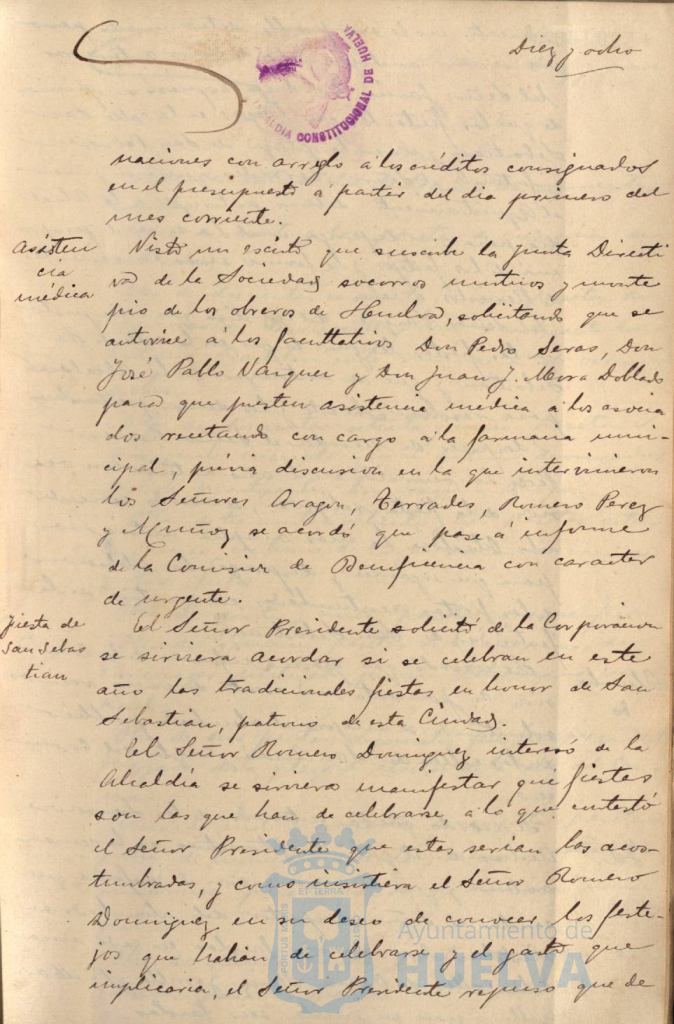 Diez y ocho
ALCALDÍA CONSTITUCIONAL DE HUELVA
naciones con arreglo á los créditos consignados
en el presupuesto á partir del dia primero del
mes corriente.
Asisten
cia
médica
Visto un escrito que suscribe la Junta Directi
va de la Sociedad socorros mutuos y monte
pio de los obreros de Huelva, solicitando que se
autorice á los facultativos Don Pedro Seras, Don
José Pablo Vazquez y Don Juan J. Mora Doblado
para que presten asistencia médica á los asocia
dos recetando con cargo á la farmacia muni-
cipal, prévia discusion en la que intervinieron
los Señores Aragon, Terrades, Romero Perez
y Muñoz se acordó que pase á informe
de la Comision de Beneficencia con caracter
de urgente.
Fiesta de
San Sebas
tian
El Señor Presidente solicitó de la Corporacion
se sirviera acordar si se celebran en este
año las tradicionales fiestas en honor de San
Sebastian, patrono de esta Ciudad.
El Señor Romero Dominguez interesó de la
Alcaldía se sirviera manifestar qué fiestas
son las que han de celebrarse, a lo que contestó
el Señor Presidente que estas serian las acos-
tumbradas, y como insistiera el Señor Romero
Dominguez en su deseo de conocer los feste-
jos que habian de celebrarse y el gasto que
implicaria, el Señor Presidente repuso que de
Ayuntamiento de
HUELVA